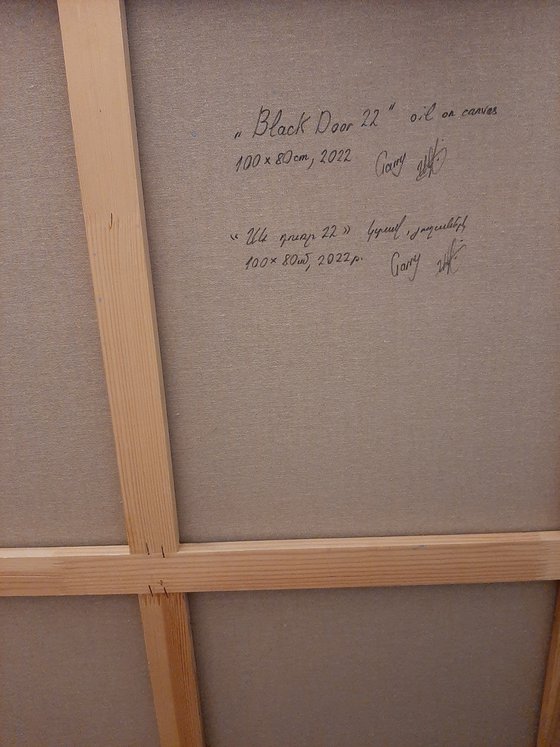 „Black Door 22" oil on canvas
100 x 80cm, 2022 Garry
«Սև դուռ 22» կտավ, յուղաներկ
100 x 80սմ, 2022թ. Garry